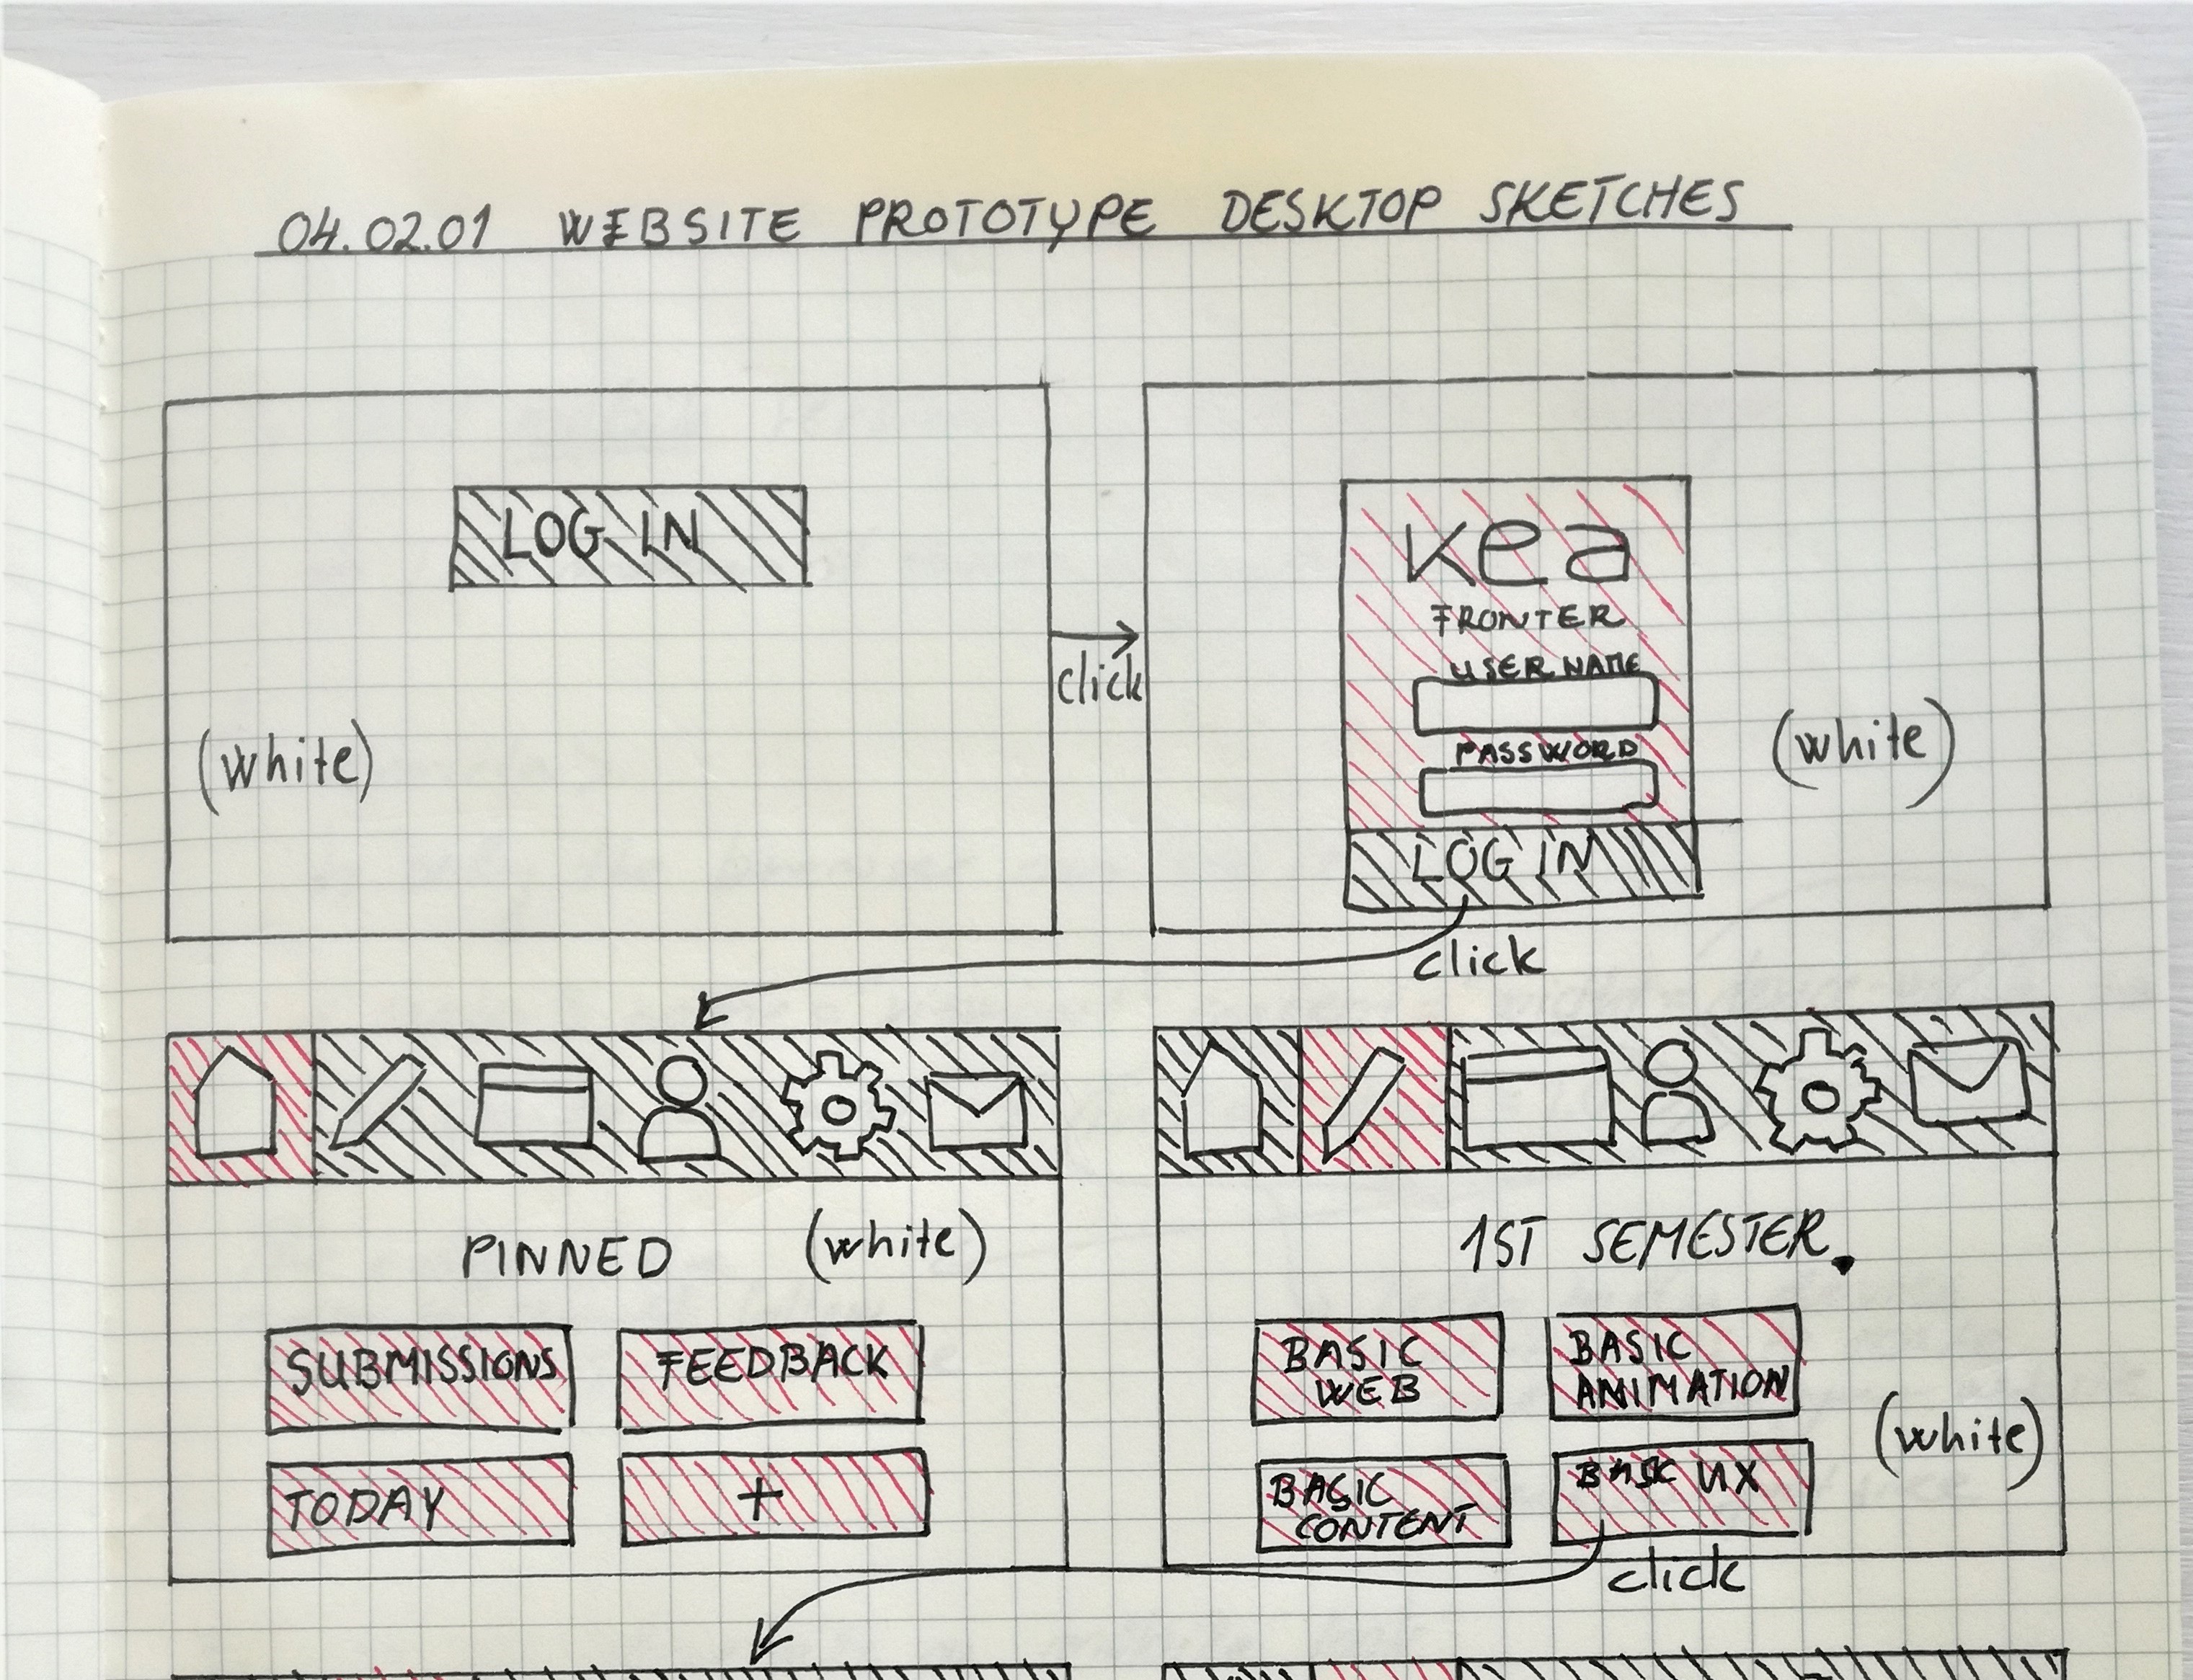 04.02.01 WEBSITE PROTOTYPE DESKTOP SKETCHES
LOG IN
(white)
click
kea
FRONTER
USER NAME
PASSWORD
LOG IN
(white)
click
PINNED (white)
SUBMISSIONS
FEEDBACK
TODAY
+
1ST SEMESTER.
BASIC
WEB
BASIC
ANIMATION
BASIC
CONTENT
BASIC UX
(white)
click